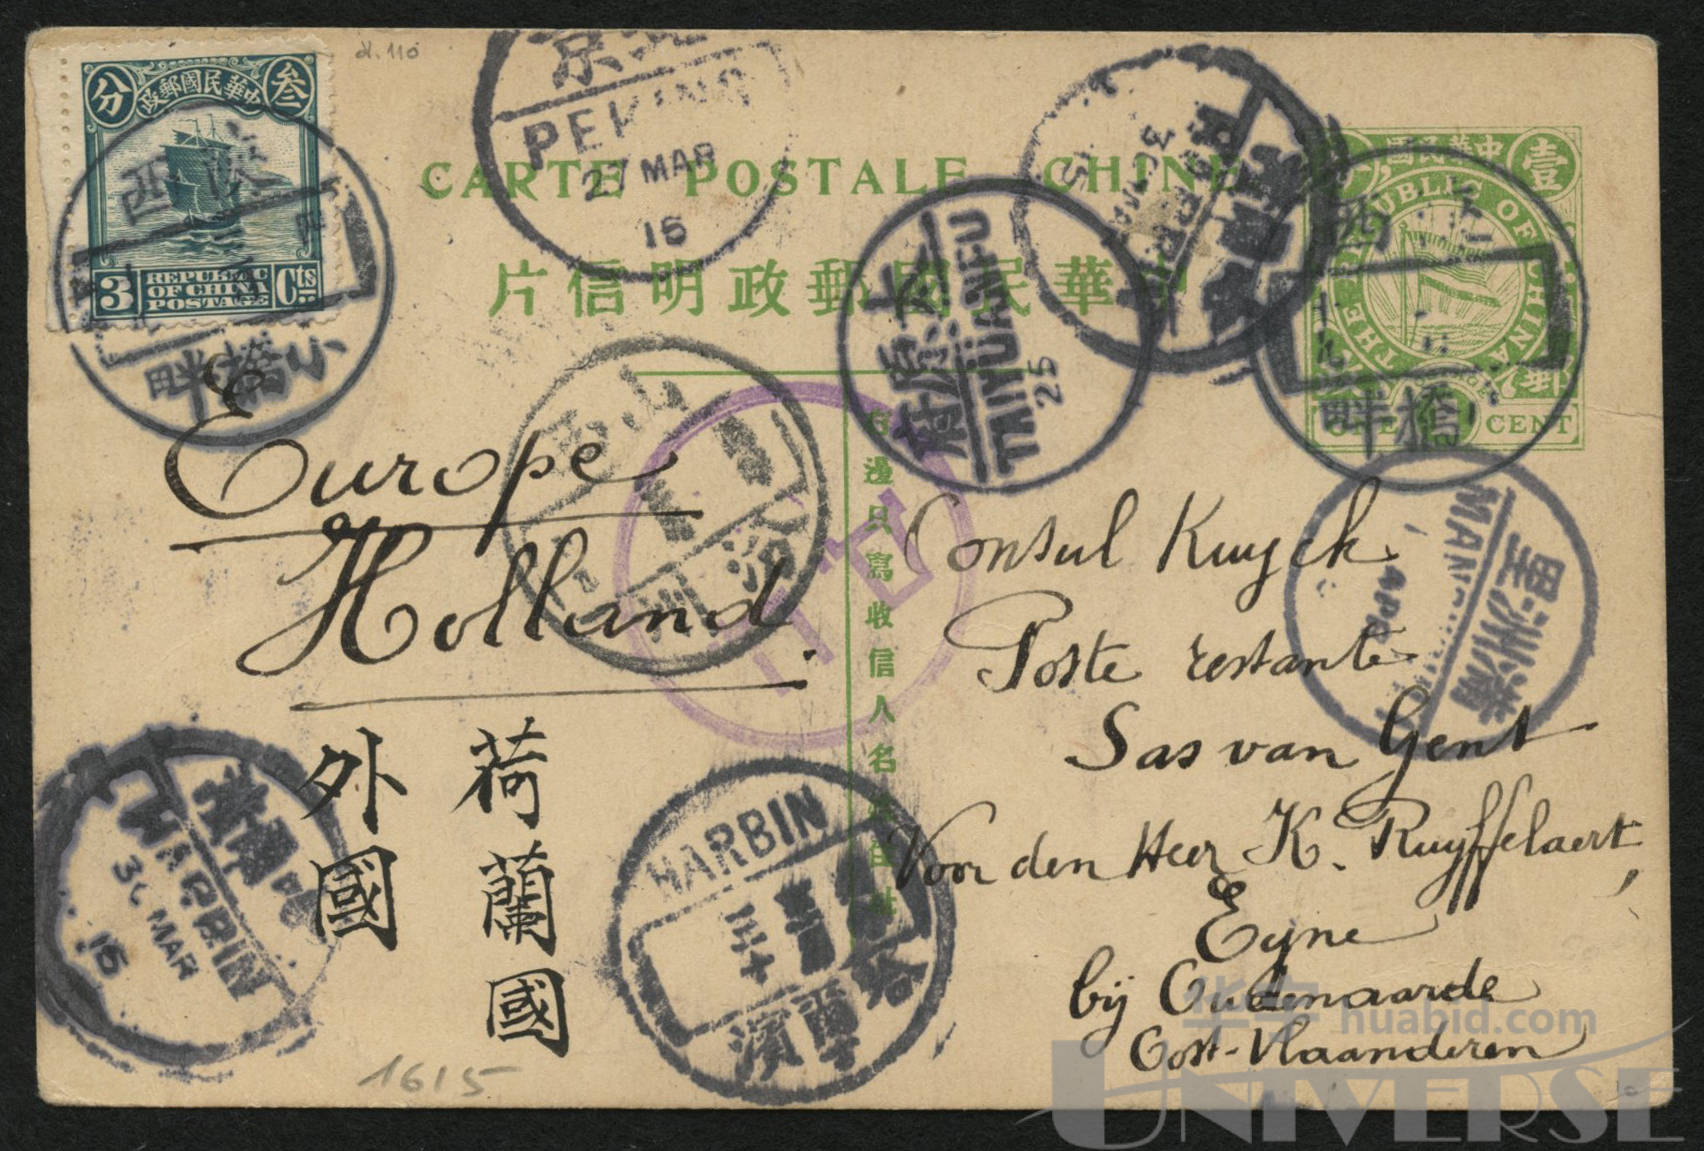 d. 110
叁
中華民國郵政
分
3 REPUBLIC OF CHINA POSTAGE Cts
陝西
小橋畔
京
PEKING
27 MAR
16
CARTE POSTALE CHINE
中華民國郵政明信片
太原府
TAIYUANFU
25
中華民國郵
壹
THE REPUBLIC OF CHINA
ONE CENT
橋畔
山西
汾州
Europe
Holland.
荷蘭國
外國
邊只寫收信人名
Consul Kuyck
Poste restante
Sas van Gent
Voor den Heer K. Ruyffelaert,
Eyne
bij Oudenaarde
Oost-Vlaanderen
滿洲里
APR
HARBIN
30 MAR
16
HARBIN
哈爾濱
1615
华宇 huabid.com
UNIVERSE